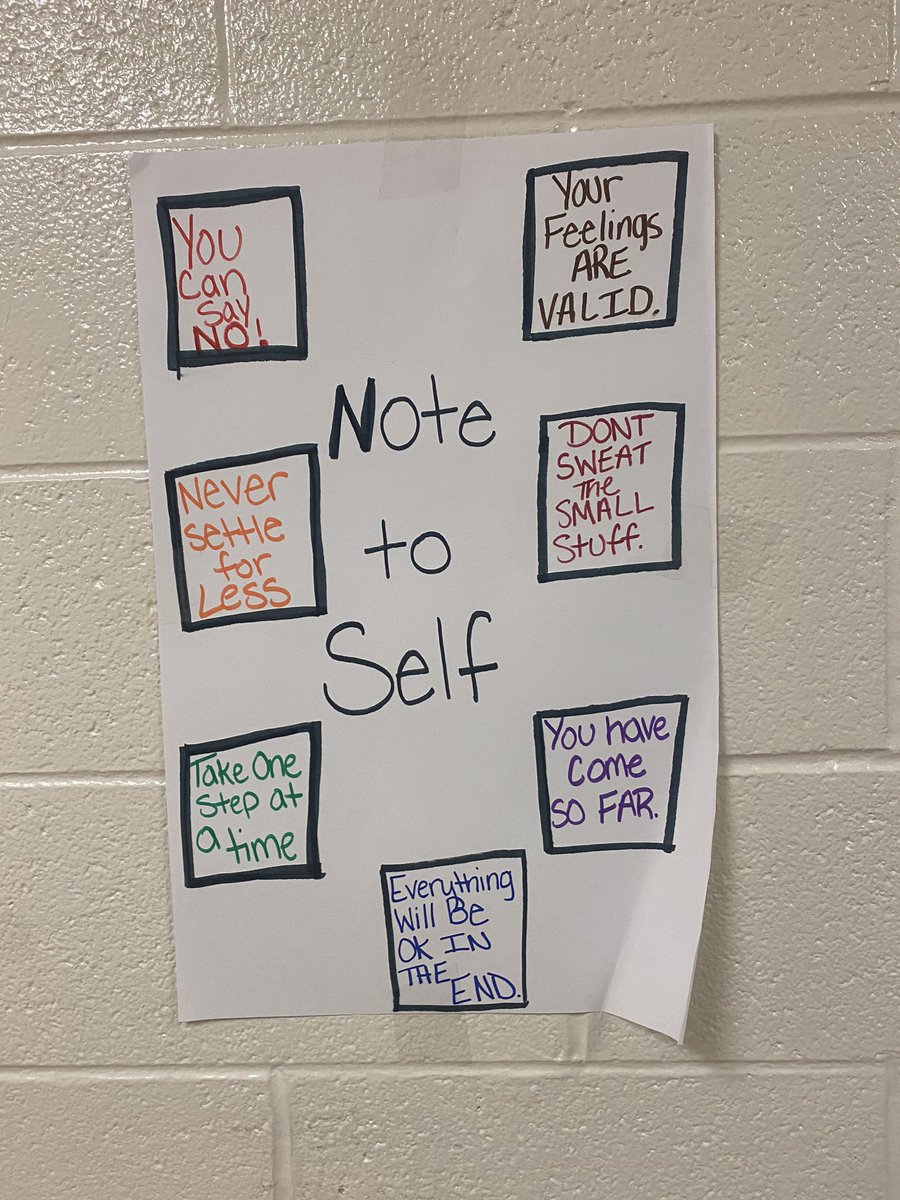 You
can
say
NO!
Your
Feelings
ARE
VALID.
Note
to
Self
Never
settle
for
Less
DONT
SWEAT
the
SMALL
Stuff.
Take One
step at
a time
You have
come
SO FAR.
Everything
Will Be
OK IN
THE
END.